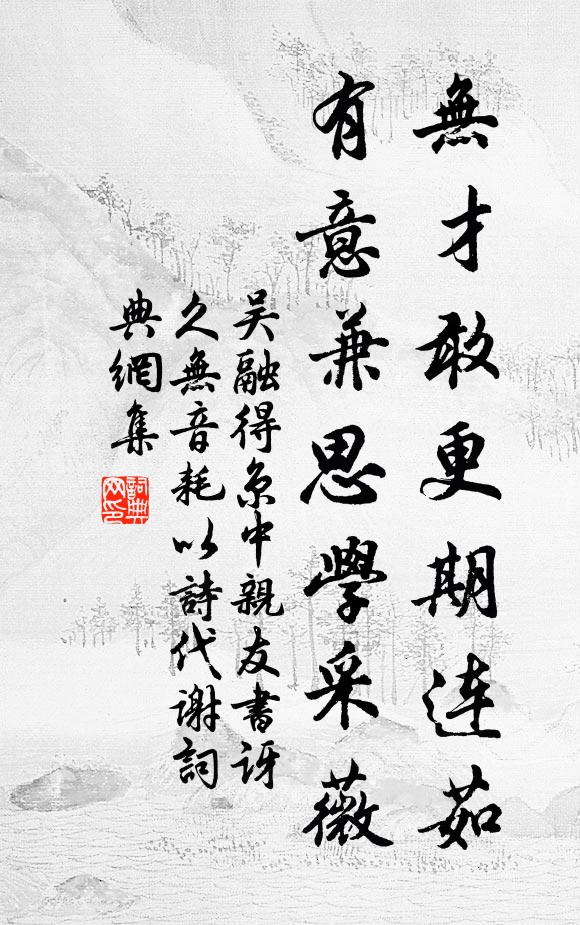 無才敢更期连茹
有意兼思學采薇
吴融得京中親友書訝
久無音耗以詩代謝詞
典網集
詞典
网印